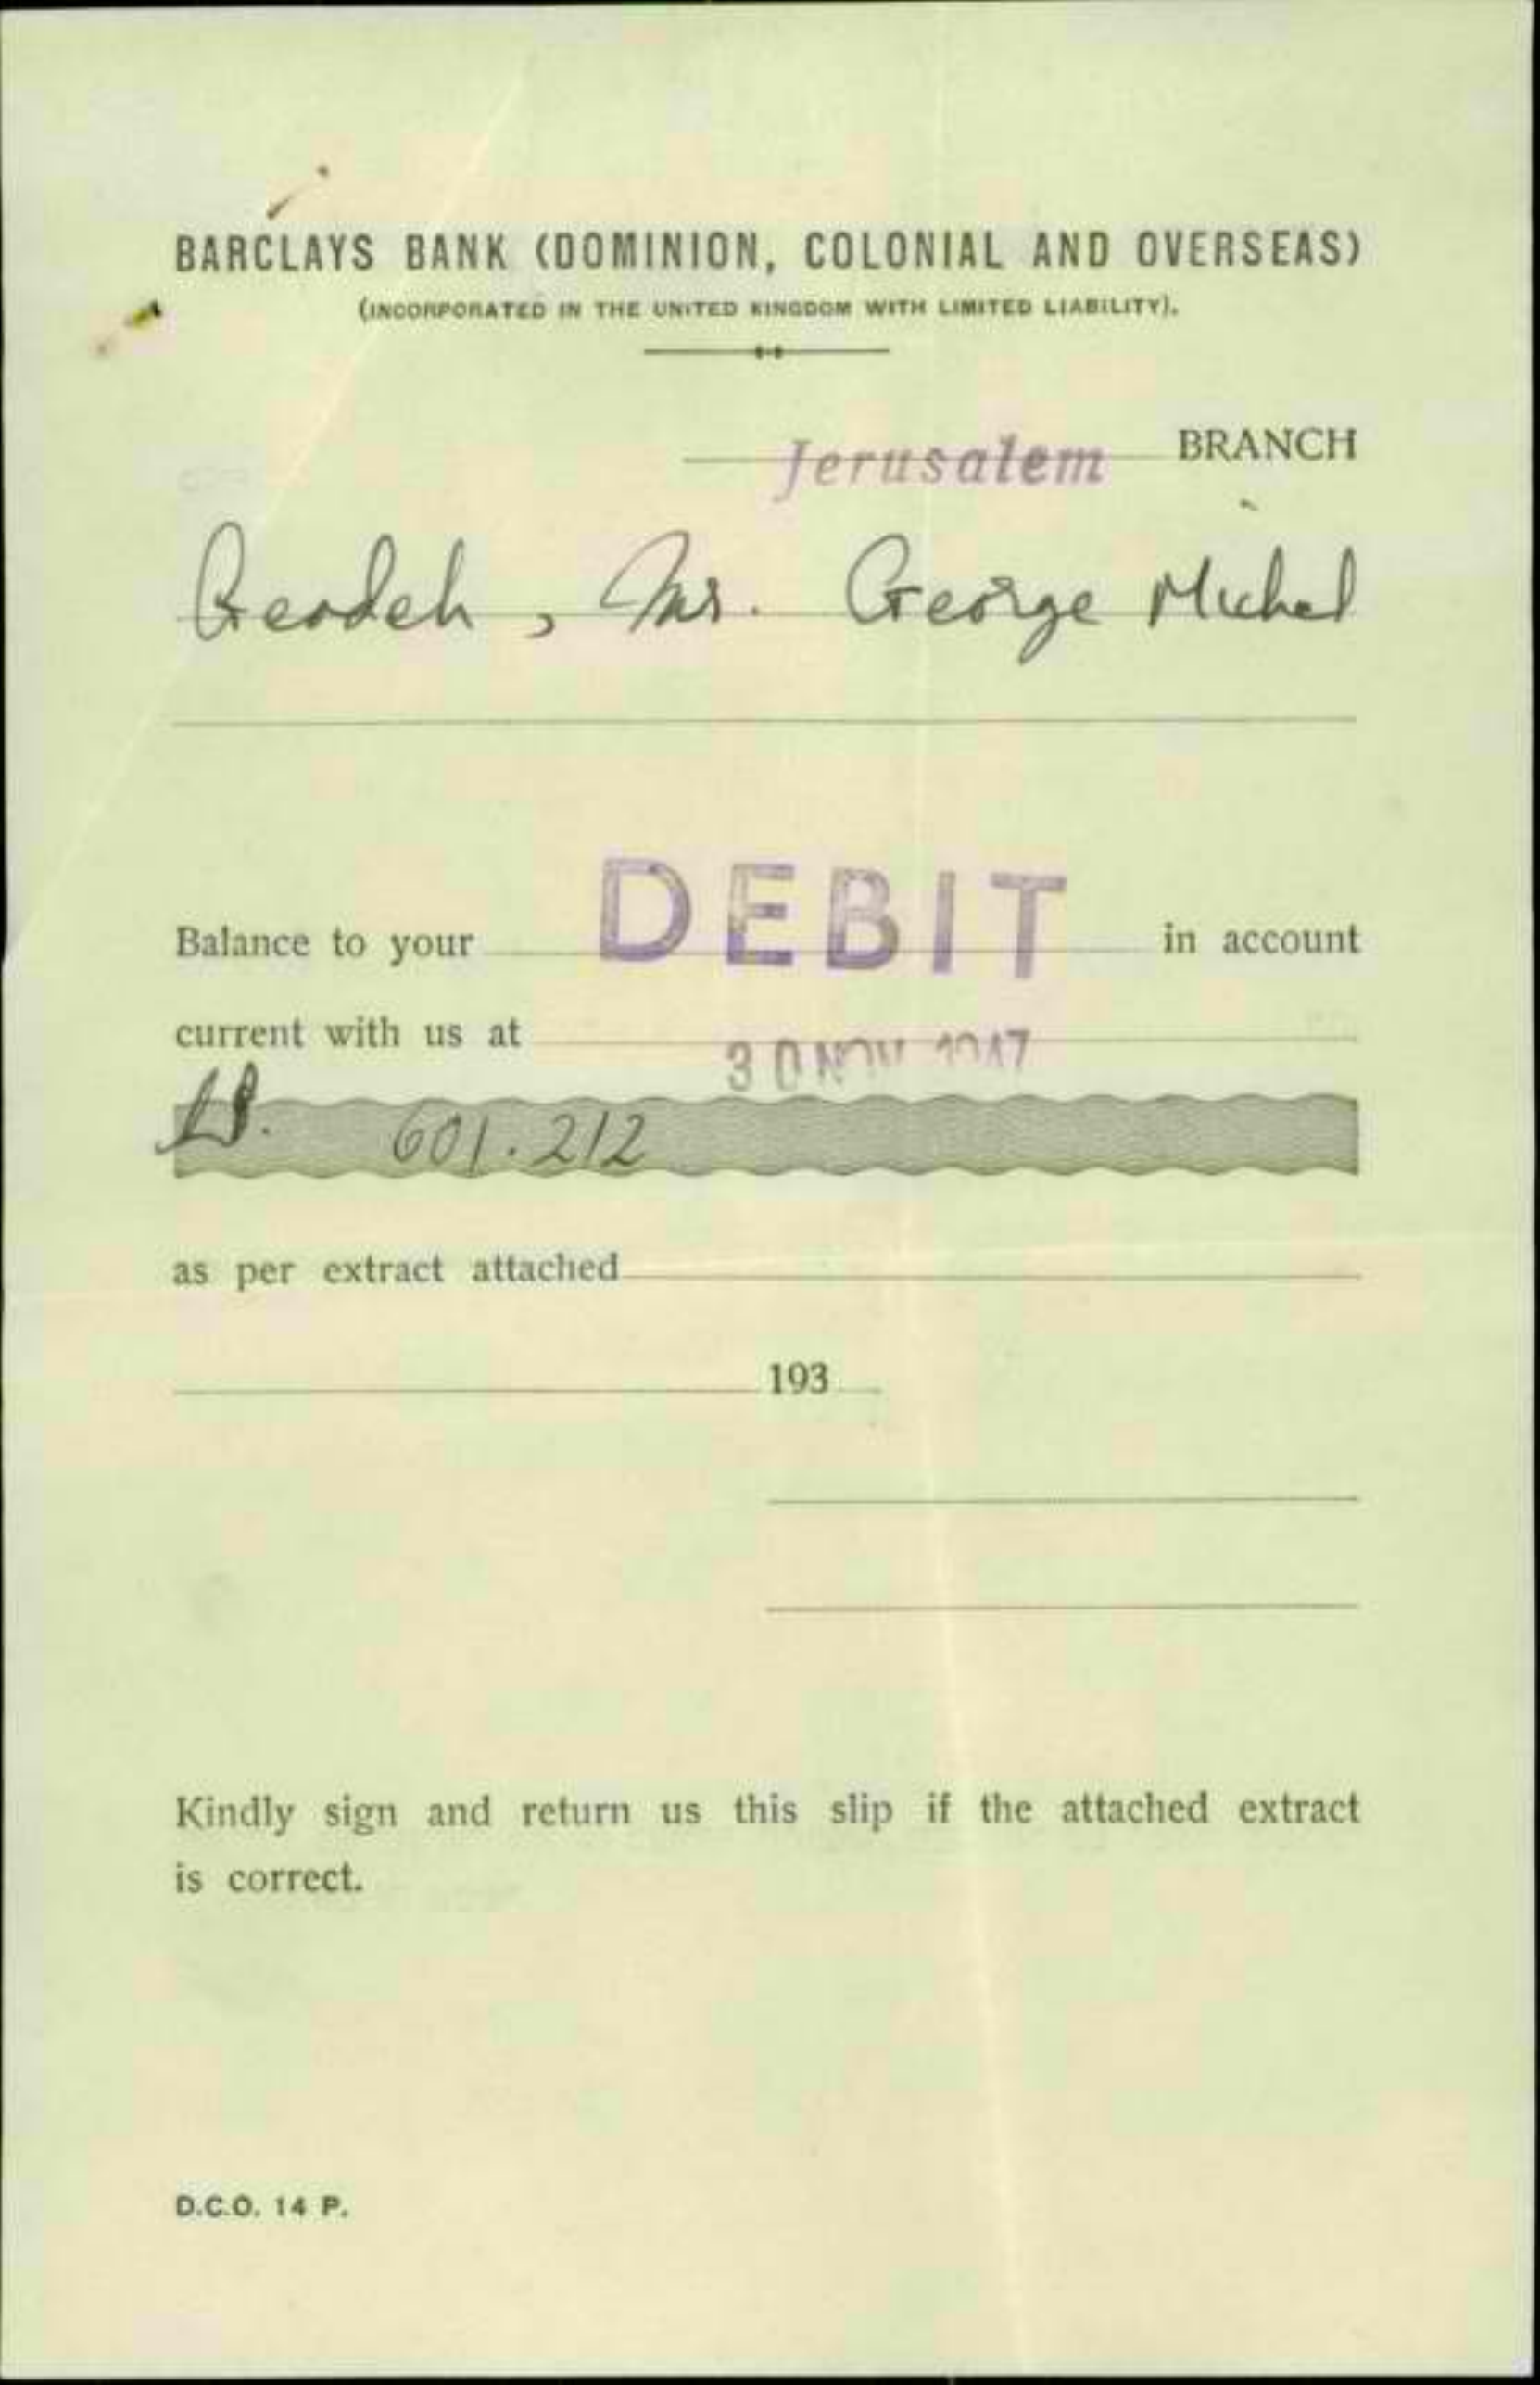 BARCLAYS BANK (DOMINION, COLONIAL AND OVERSEAS)
(INCORPORATED IN THE UNITED KINGDOM WITH LIMITED LIABILITY).
Jerusalem BRANCH
George Michel
Balance to your DEBIT in account
current with us at
30 NOV 1947
601.212
as per extract attached
193
Kindly sign and return us this slip if the attached extract
is correct.
D.C.O. 14 P.